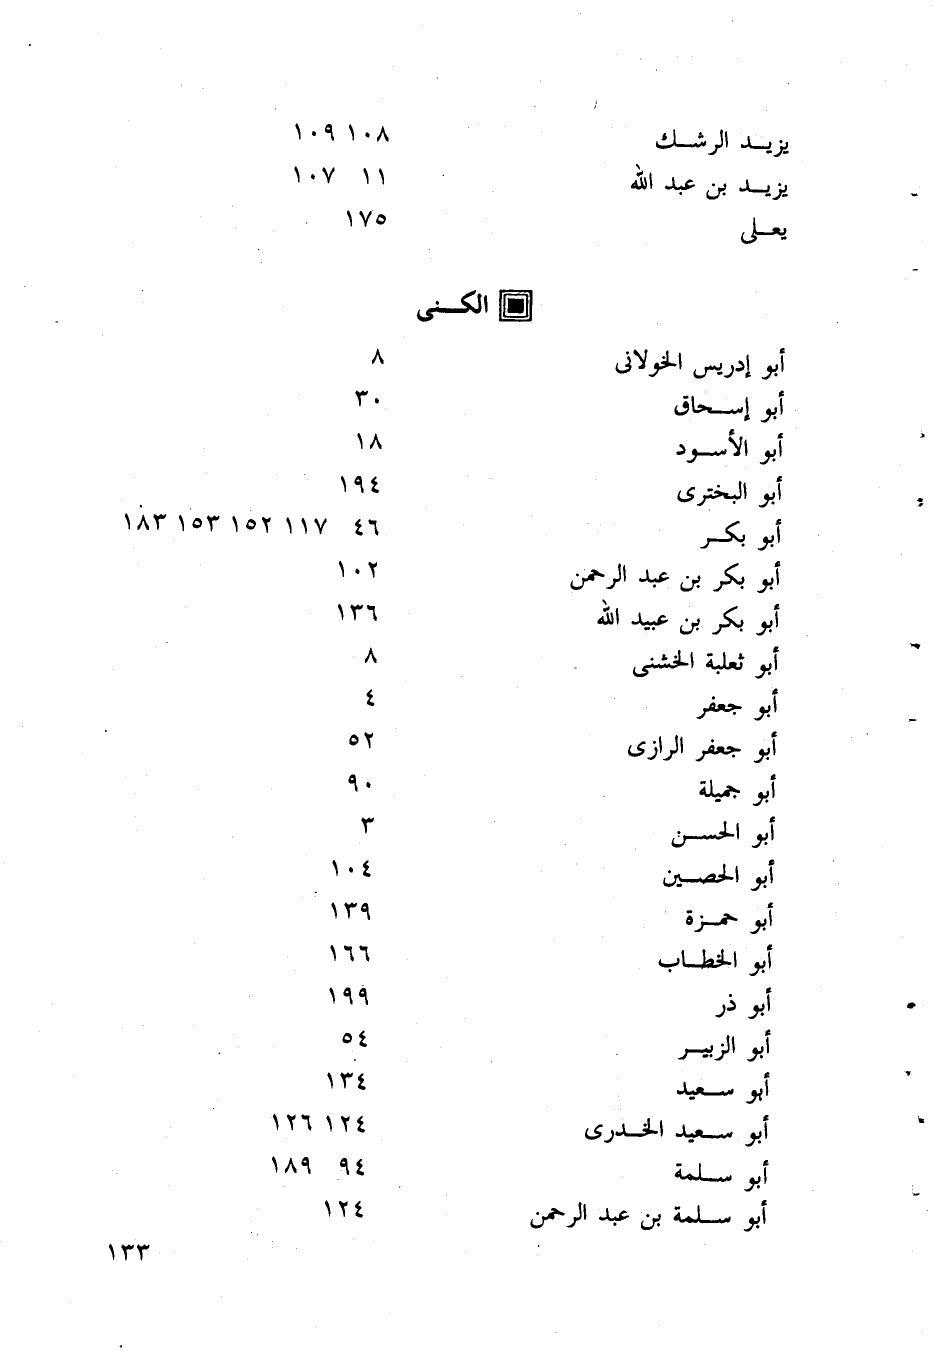 يزيد الرشك ١٠٨ ١٠٩
يزيد بن عبد الله ١١ ١٠٧
يعلى ١٧٥
الكنى
أبو إدريس الخولانى ٨
أبو إسحاق ٣٠
أبو الأسود ١٨
أبو البخترى ١٩٤
أبو بكر ٤٦ ١١٧ ١٥٢ ١٥٣ ١٨٣
أبو بكر بن عبد الرحمن ١٠٢
أبو بكر بن عبيد الله ١٣٦
أبو ثعلبة الخشنى ٨
أبو جعفر ٤
أبو جعفر الرازى ٥٢
أبو جميلة ٩٠
أبو الحسن ٣
أبو الحصين ١٠٤
أبو حمزة ١٣٩
أبو الخطاب ١٦٦
أبو ذر ١٩٩
أبو الزبير ٥٤
أبو سعيد ١٣٤
أبو سعيد الخدرى ١٢٤ ١٢٦
أبو سلمة ٩٤ ١٨٩
أبو سلمة بن عبد الرحمن ١٢٤
١٣٣